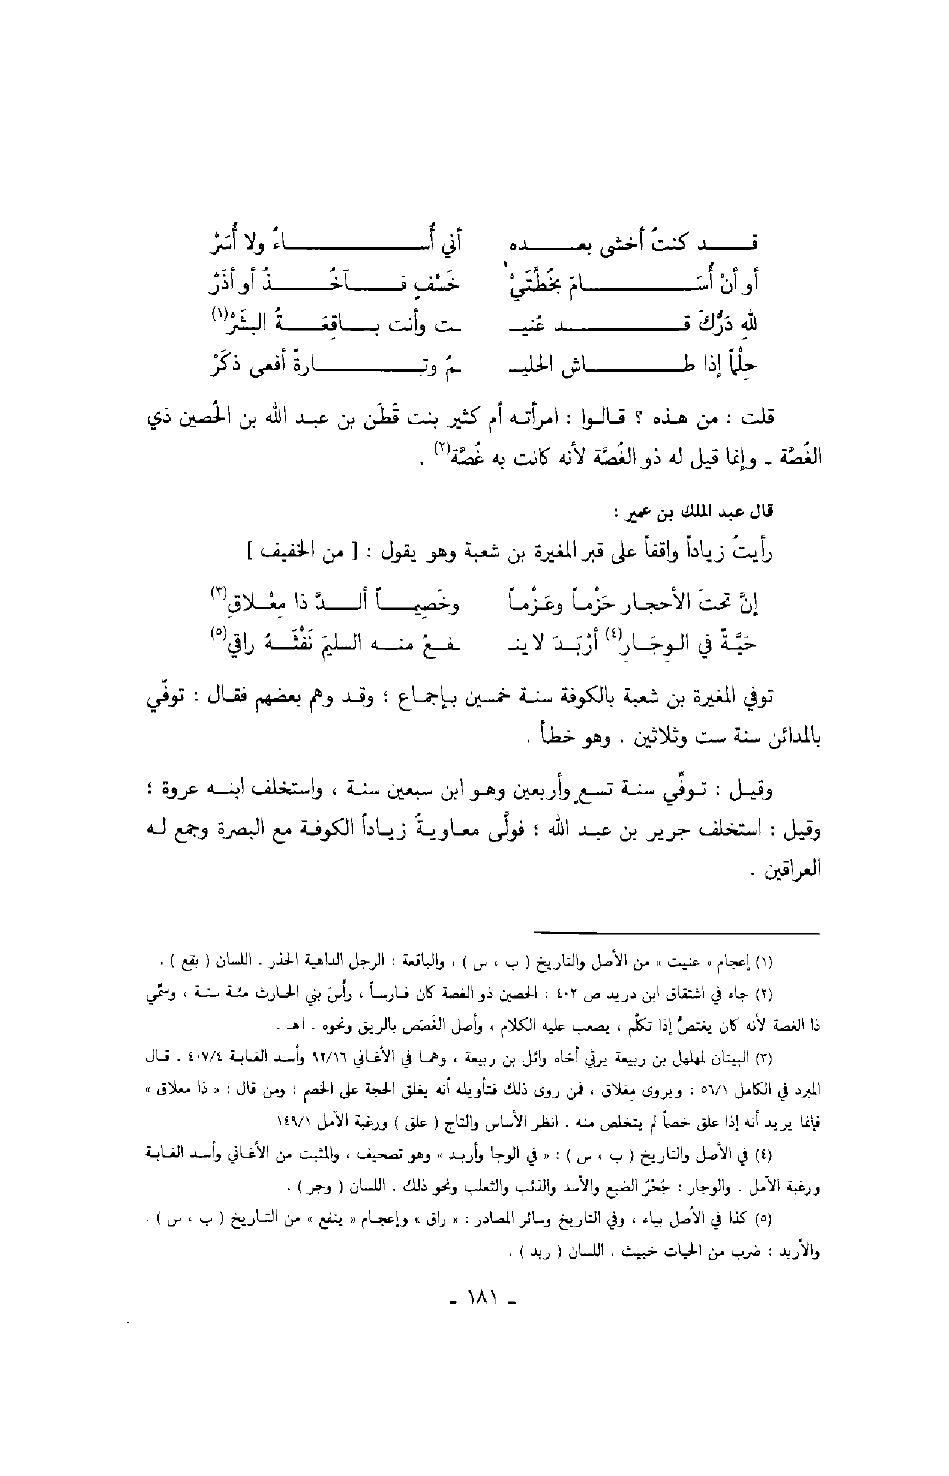 قد كنتُ أخشى بعده أني أُساءُ ولا أُسَرْ
أو أنْ أُسَامَ بخُطَّتَيْ خَسْفٍ فآخُذُ أو أذَرْ
لله دَرُّكَ قد غنيـ ـت وأنت باقِعَةُ البَشَرْ(١)
حِلْماً إذا طاش الحليـ ـمُ وتارةً أفعى ذكَرْ
قلت : من هذه ؟ قالوا : امرأته أم كثير بنت قَطَن بن عبد الله بن الحُصين ذي
الغُصَّة ـ وإنما قيل له ذو الغُصَّة لأنه كانت به غُصَّة(٢) .
قال عبد الملك بن عمير :
رأيتُ زياداً واقفاً على قبر المغيرة بن شعبة وهو يقول : [ من الخفيف ]
إنَّ تحتَ الأحجار حَزْماً وعَزْماً وخَصِيماً ألدَّ ذا مِعْلاقِ(٣)
حَيَّةٌ في الوِجَارِ(٤) أرْبَدَ لا ينـ ـفعُ منه السليمَ نَفْثَةُ راقي(٥)
توفي المغيرة بن شعبة بالكوفة سنة خمسين بإجماع ؛ وقد وهم بعضهم فقال : توفّي
بالمدائن سنة ست وثلاثين . وهو خطأ .
وقيل : توفّي سنة تسعٍ وأربعين وهو ابن سبعين سنة ، واستخلف ابنه عروة ؛
وقيل : استخلف جرير بن عبد الله ؛ فولَّى معاويةُ زياداً الكوفة مع البصرة وجمع له
العراقين .
(١) إعجام « غنيت » من الأصل والتاريخ ( ب ، س ) ، والباقعة : الرجل الداهية الحذر . اللسان ( بقع ) .
(٢) جاء في اشتقاق ابن دريد ص ٤٠٢ : الحصين ذو الغصة كان فارساً ، رأسَ بني الحارث مئة سنة ، وسمّي
ذا الغصة لأنه كان يغتصُّ إذا تكلَّم ، يصعب عليه الكلام ، وأصل الغَصَص بالريق ونحوه . اهـ .
(٣) البيتان لمهلهل بن ربيعة يرثي أخاه وائل بن ربيعة ، وهما في الأغاني ٩٢/١٦ وأسد الغابة ٤٠٧/٤ . قال
المبرد في الكامل ٥٦/١ : ويروى مِغلاق ، فمن روى ذلك فتأويله أنه يغلق الحجة على الخصم ؛ ومن قال : « ذا معلاق »
فإنما يريد أنه إذا علق خصماً لم يتخلص منه . انظر الأساس والتاج ( علق ) ورغبة الآمل ١٤٩/١
(٤) في الأصل والتاريخ ( ب ، س ) : « في الوجا وأربد » وهو تصحيف ، والمثبت من الأغاني وأسد الغابة
ورغبة الآمل . والوجار : جُحْرُ الضبع والأسد والذئب والثعلب ونحو ذلك . اللسان ( وجر ) .
(٥) كذا في الأصل بياء ، وفي التاريخ وسائر المصادر : « راق » وإعجام « ينفع » من التاريخ ( ب ، س ) .
والأربد : ضرب من الحيات خبيث . اللسان ( ربد ) .
ـ ١٨١ ـ